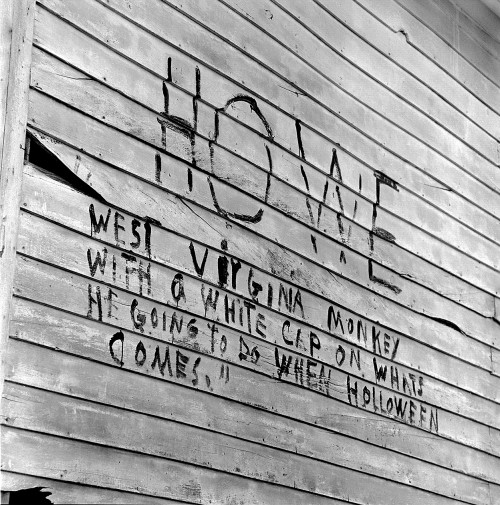 HOWE
WEST VIRGINIA MONKEY
WITH a WHITE CAP ON WHATS
HE GOING TO DO WHEN HOLLOWEEN
COMES."